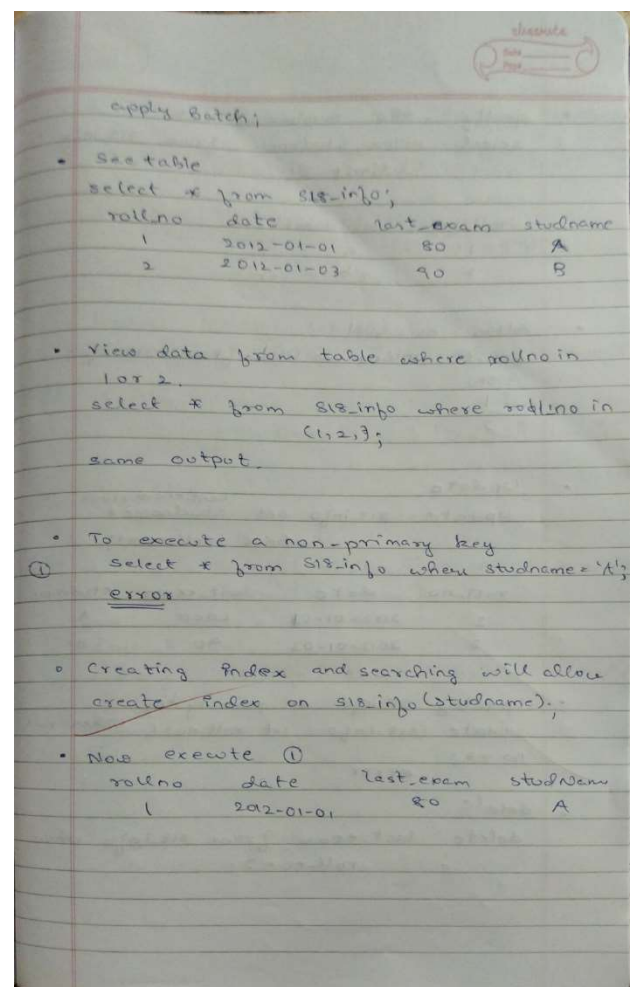 classmate
Date
Page
apply Batch;
• see table
select * from S18_info;
roll.no date last_exam studname
1 2012-01-01 80 A
2 2012-01-03 90 B
• View data from table where rollno in
1 or 2.
select * from S18_info where rollno in
(1,2,);
same output.
• To execute a non-primary key
① select * from S18_info where studname='A';
error
• Creating index and searching will allow
create index on S18_info (studname);
• Now execute ①
rollno date last_exam studNam
1 2012-01-01 80 A